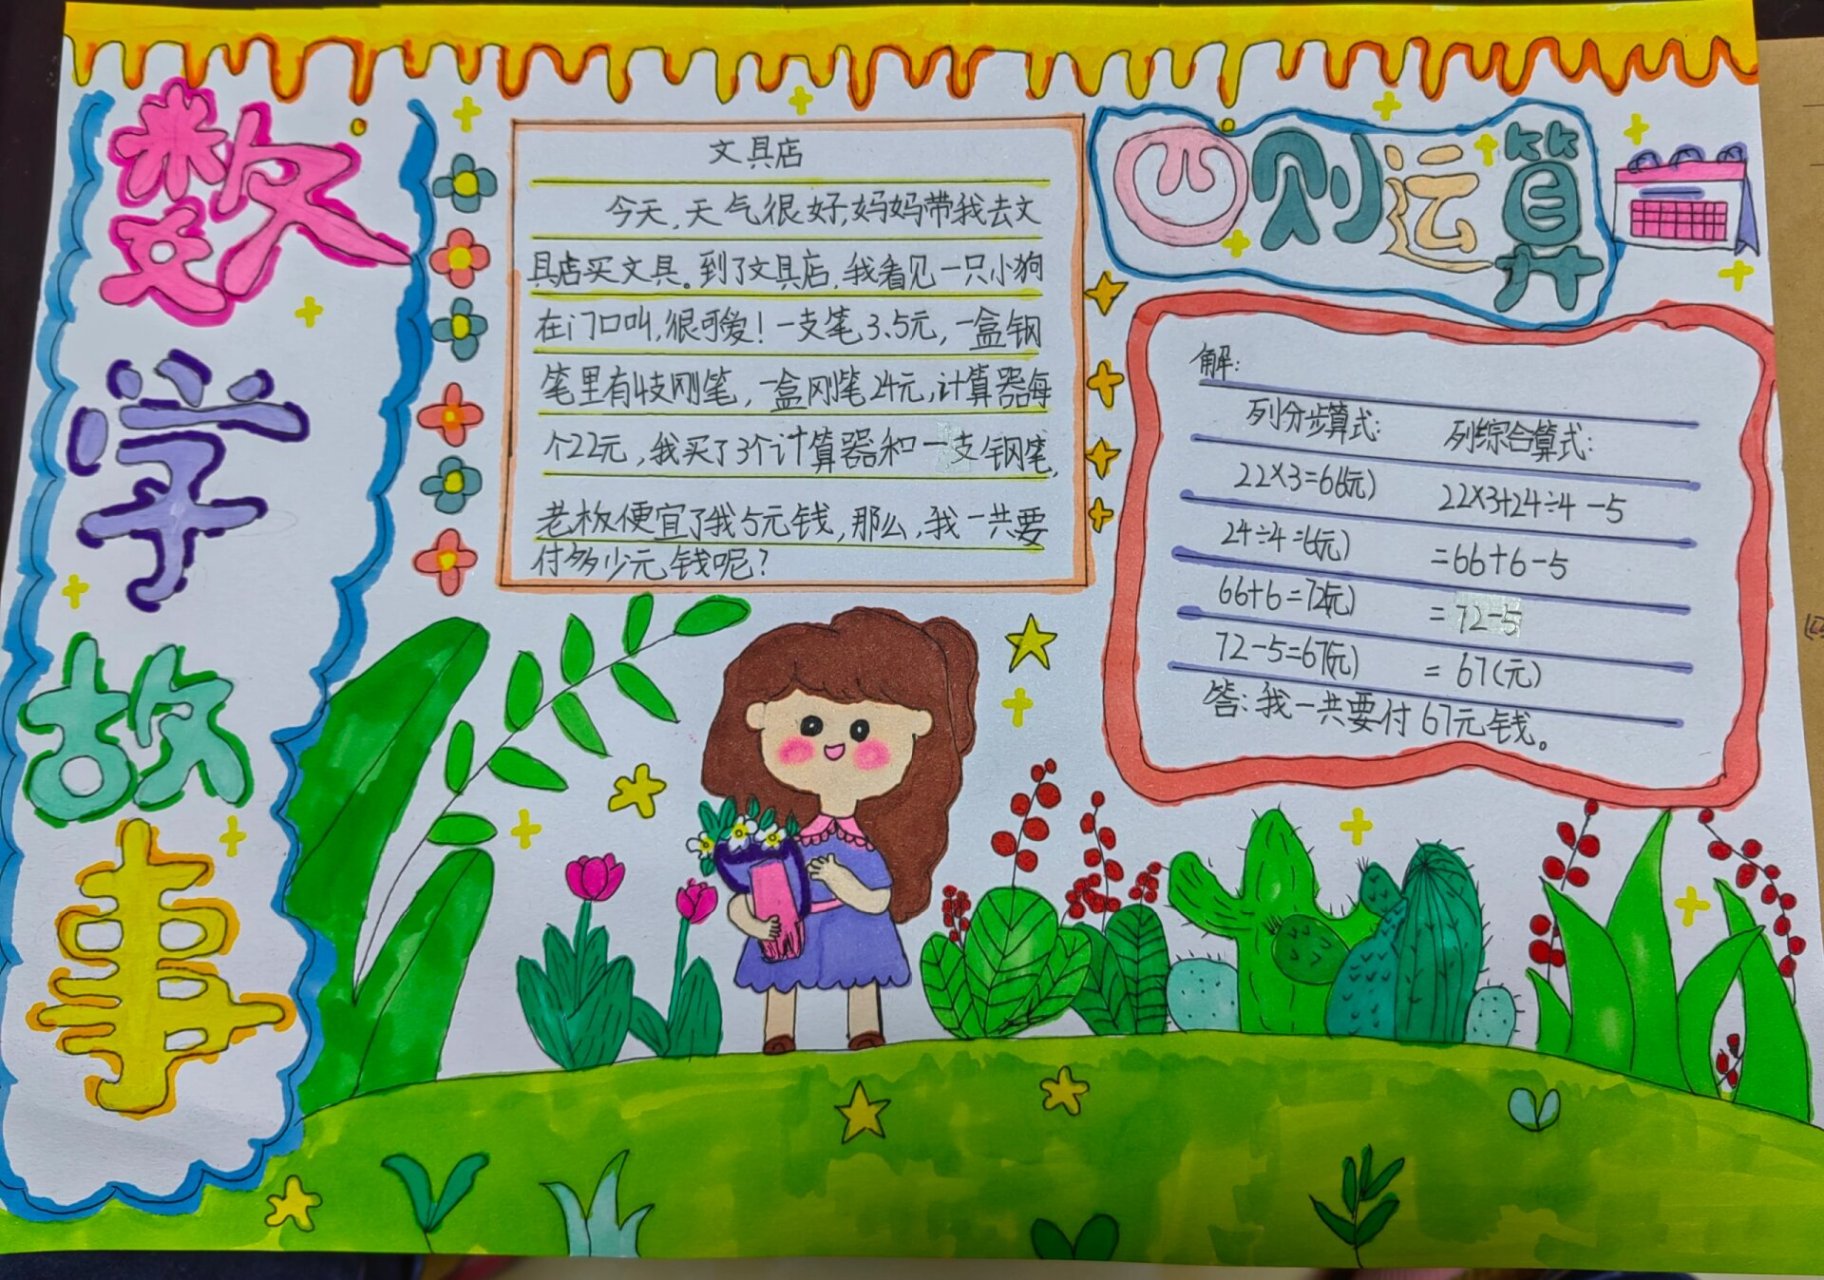 数学故事
文具店
今天，天气很好，妈妈带我去文
具店买文具。到了文具店，我看见一只小狗
在门口叫，很可爱！一支笔3.5元，一盒钢
笔里有4支刚笔，一盒刚笔24元，计算器每
个22元，我买了3个计算器和一支钢笔，
老板便宜了我5元钱，那么，我一共要
付多少元钱呢？
四则运算
解：
列分步算式： 列综合算式：
22×3=66(元) 22×3+24÷4-5
24÷4=6(元) =66+6-5
66+6=72(元) =72-5
72-5=67(元) =67(元)
答：我一共要付67元钱。